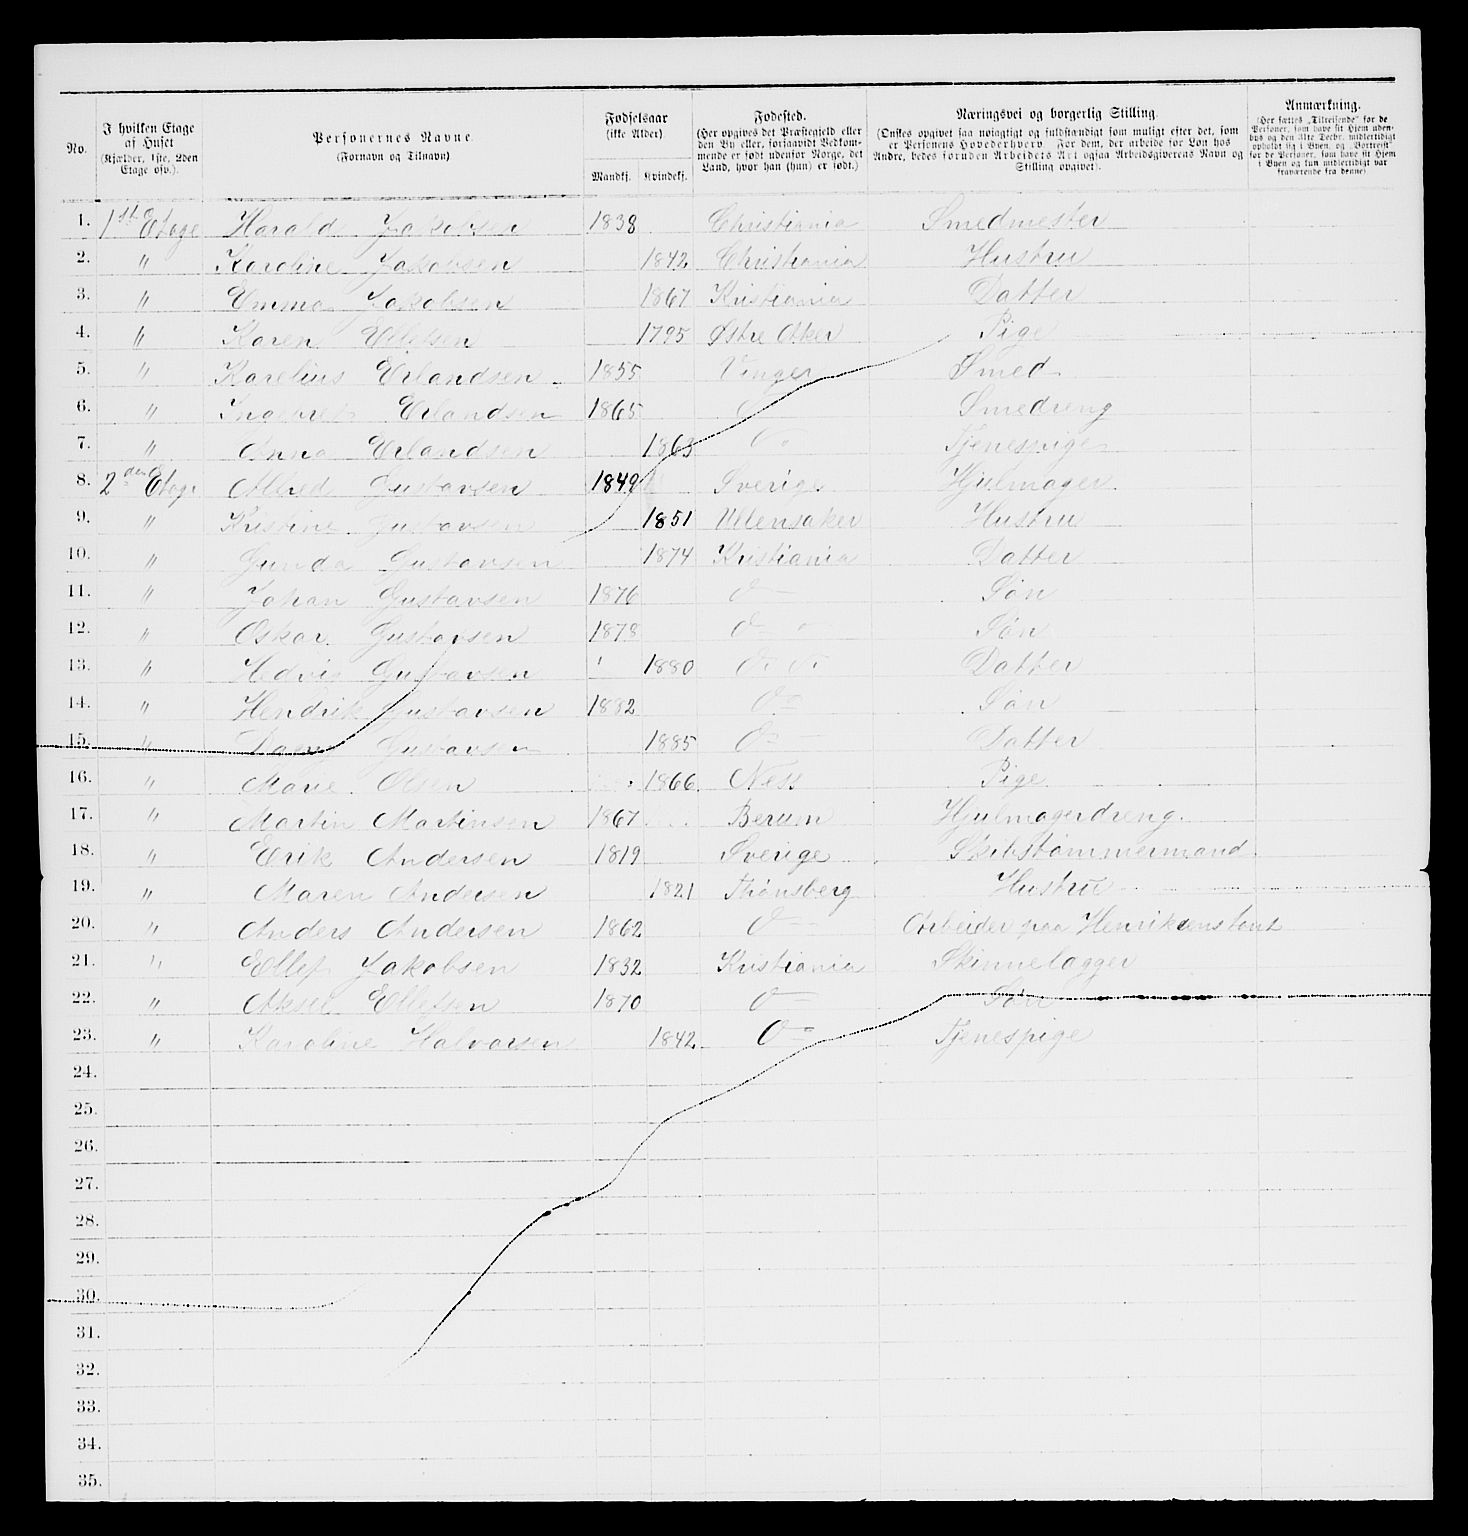 No. | I hvilken Etage af Huset (Kjælder, 1ste, 2den Etage osv.). | Personernes Navne. (Fornavn og Tilnavn) | Fødselsaar (ikke Alder) Mandkj. Kvindekj. | Fødested. (Her opgives det Præstegjeld eller den By eller, forsaavidt Vedkommende er født udenfor Norge, det Land, hvor han (hun) er født.) | Næringsvei og borgerlig Stilling. (Ønskes opgivet saa nøiagtigt og fuldstændigt som muligt efter det, som er Personens Hovederhverv. For dem, der arbeide for Løn hos Andre, bedes foruden Arbeidets Art ogsaa Arbeidsgiverens Navn og Stilling opgivet). | Anmærkning. (Her sættes „Tilreisende“ for de Personer, som have sit Hjem udenbys og den 31te Decbr. midlertidigt opholdt sig i Byen, og „Bortreist“ for de Personer, som have sit Hjem i Byen og kun midlertidigt var fraværende fra denne)
1. 1ste Etage Harald Jakobsen 1838 Christiania Smedmester
2. " Karoline Jakobsen 1842 Christiania Hustru
3. " Emma Jakobsen 1867 Kristiania Datter
4. " Karen Ellefsen 1795 Østre Aker Pige
5. " Karelius Erlandsen 1855 Vinger Smed
6. " Ingebret Erlandsen 1865 Smedreng
7. " Anna Erlandsen 1863 Do Tjenespige
8. 2den Etage Alfred Gustavsen 1849 Sverige Hjulmager
9. " Kristine Gustavsen 1851 Ullensaker Hustru
10. " Gunda Gustavsen 1874 Kristiania Datter
11. " Johan Gustavsen 1876 Do Søn
12. " Oskar Gustavsen 1878 Do Søn
13. " Hedvig Gustavsen 1880 Do Do Datter
14. " Hendrik Gustavsen 1882 Do Søn
15. " Dagny Gustavsen 1885 Do Datter
16. " Marie Olsen 1866 Ness Pige
17. " Martin Martinsen 1867 Berum Hjulmagerdreng.
18. " Erik Andersen 1819 Sverige Skibstømmermand
19. " Maren Andersen 1821 Thønsberg Hustru
20. " Anders Andersen 1862 Do Arbeider paa
21. " Ellef Jakobsen 1832 Kristiania
22. " Aksel Ellefsen 1870 Do Søn
23. " Karoline Halvorsen 1842 Do Tjenespige
24.
25.
26.
27.
28.
29.
30.
31.
32.
33.
34.
35.